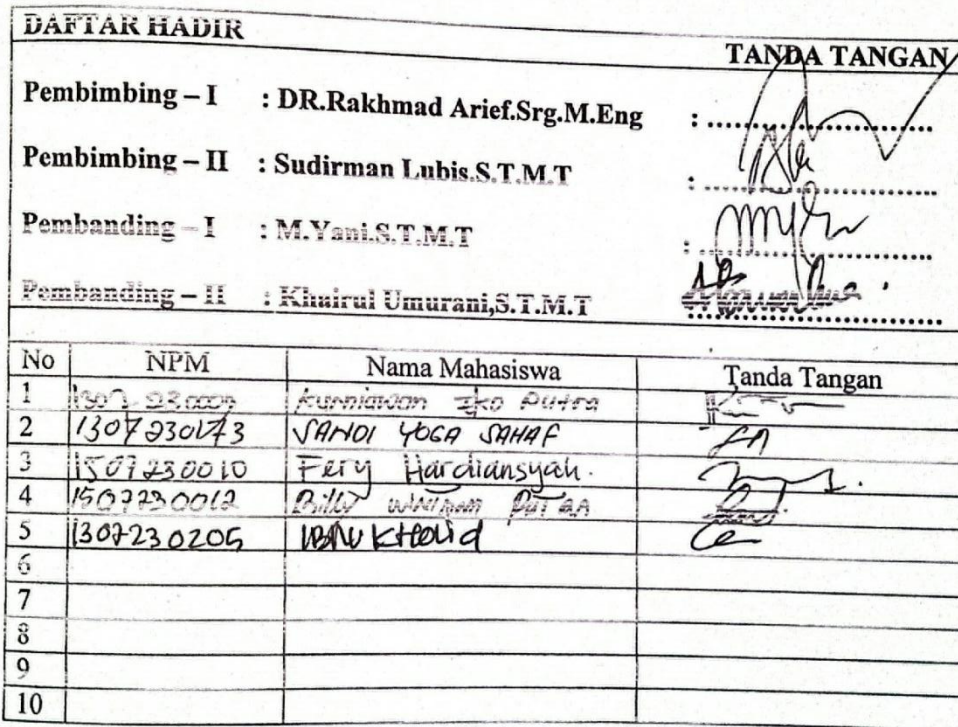 DAFTAR HADIR
TANDA TANGAN
Pembimbing – I : DR.Rakhmad Arief.Srg.M.Eng : ..............................
Pembimbing – II : Sudirman Lubis.S.T.M.T : ..............................
Pembanding – I : M.Yani.S.T.M.T : ..............................
Pembanding – II : Khairul Umurani,S.T.M.T
No NPM Nama Mahasiswa Tanda Tangan
1 Kurniawan Eko Putra
2 1307230173 SANDI YOGA SAHAF
3 1507230010 Fery Hardiansyah.
4 1507230012 Billy
5 1307230205 IBNU KHOLID
6
7
8
9
10